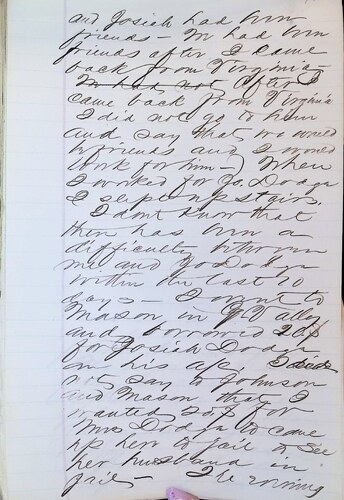 and Josiah had been
friends - We had been
friends after I came
back from Virginia -
We had not after I
came back from Virginia
I did not go to him
and say that we would
be friends and I would
work for him - When
I worked for Jo. Dodge
I slept up stairs.
I dont know that
there has been a
difficulty between
me and Jo Dodge
within the last 10
days - I went to
Mason in alley
and borrowed
for Josiah Dodge
on his a/c, I did
not say to Johnson
and Mason that I
wanted for
Mrs Dodge to come
up here to jail to see
her husband in
jail -